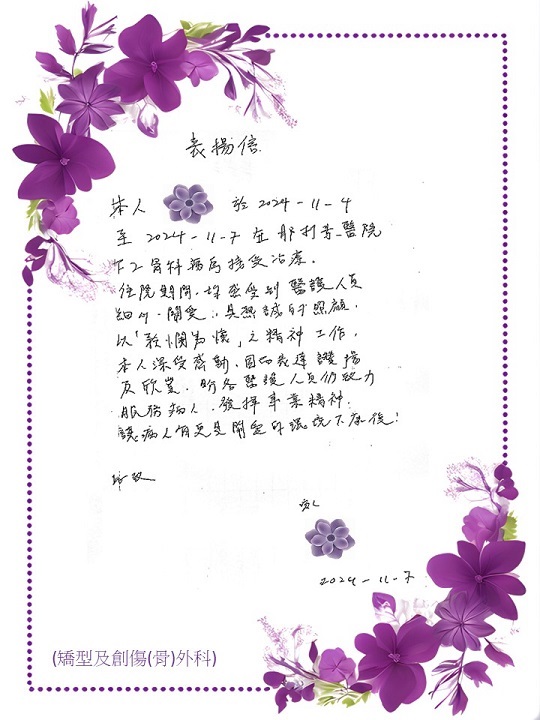 表揚信
本人 於 2024-11-4
至 2024-11-7 在 那打素醫院
F2 骨科病房接受治療.
住院期間, 均感受到 醫護人員
細心, 關愛, 真熱誠的照顧.
以「矜憫為懷」之精神工作,
本人深受感動, 因而表達讚揚
及欣賞. 盼各醫護人員仍致力
服務病人, 發揮專業精神.
讓病人有更具關愛的環境下康復!
病人
2024-11-7
(矯型及創傷(骨)外科)